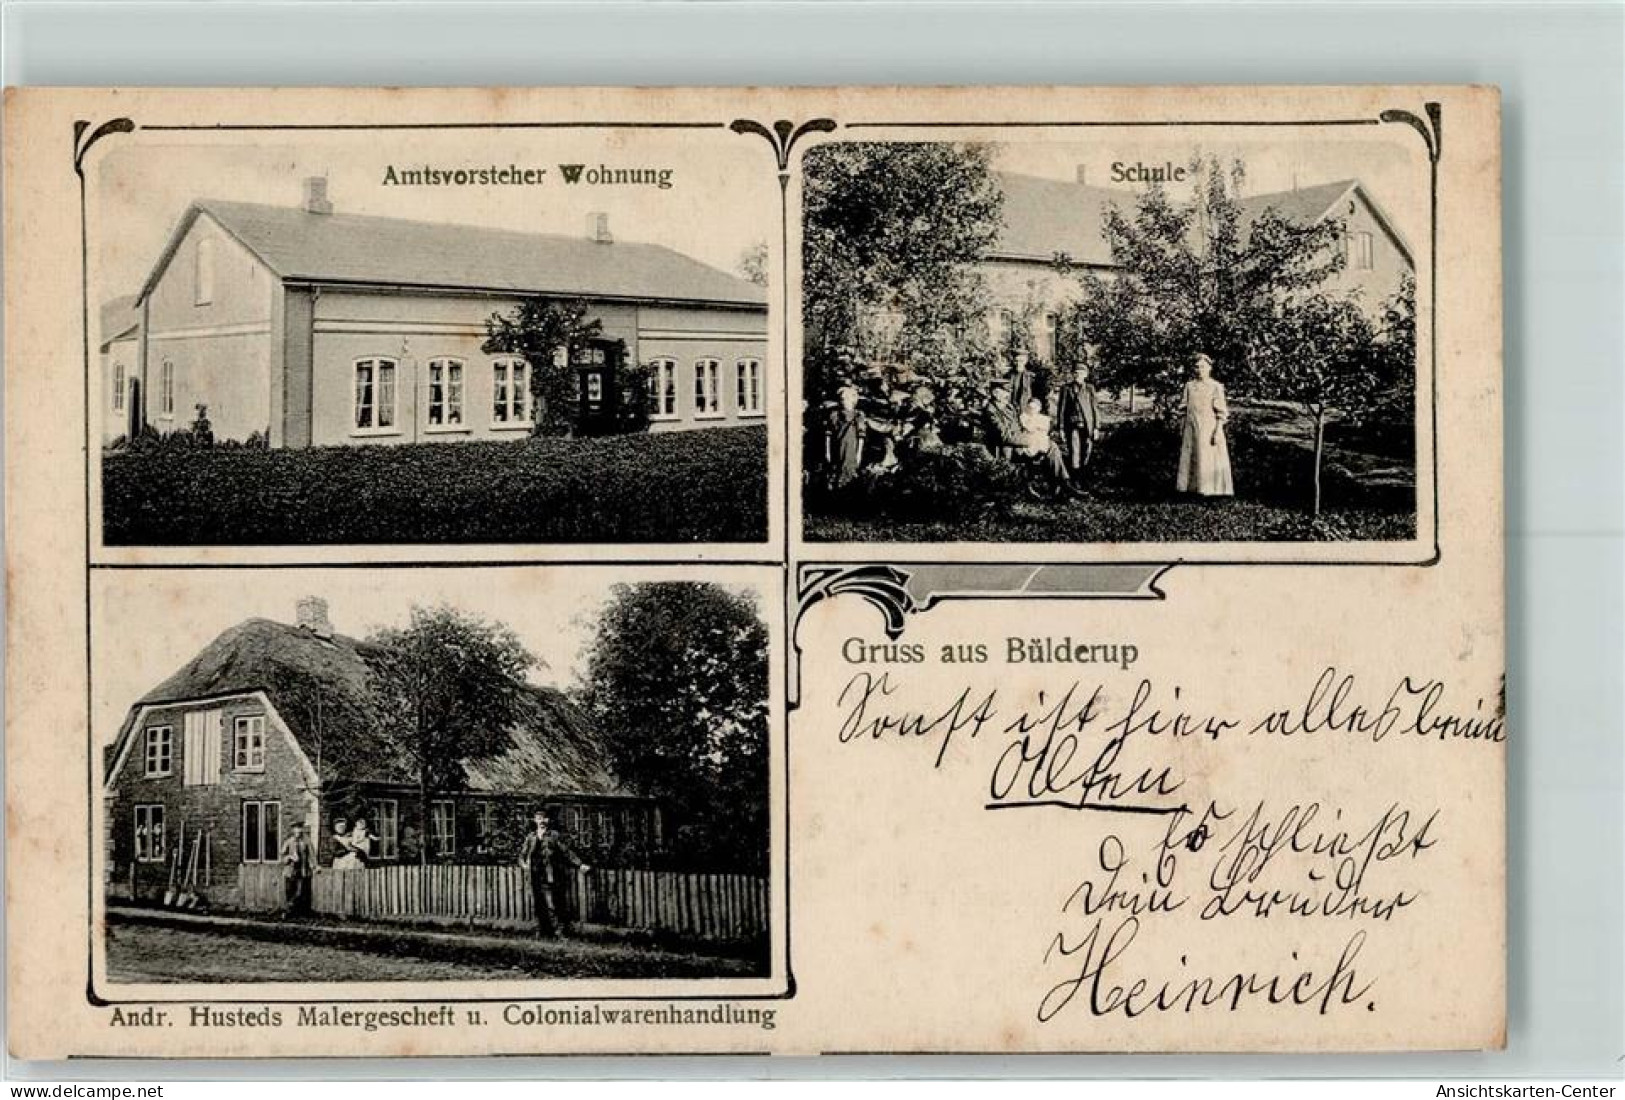 Amtsvorsteher Wohnung
Schule
Gruss aus Bülderup
Sonst ist hier alles beim
Alten
Es schließt
Dein Bruder
Heinrich.
Andr. Husteds Malergescheft u. Colonialwarenhandlung
your marketplace for collectors
Ansichtskarten-Center